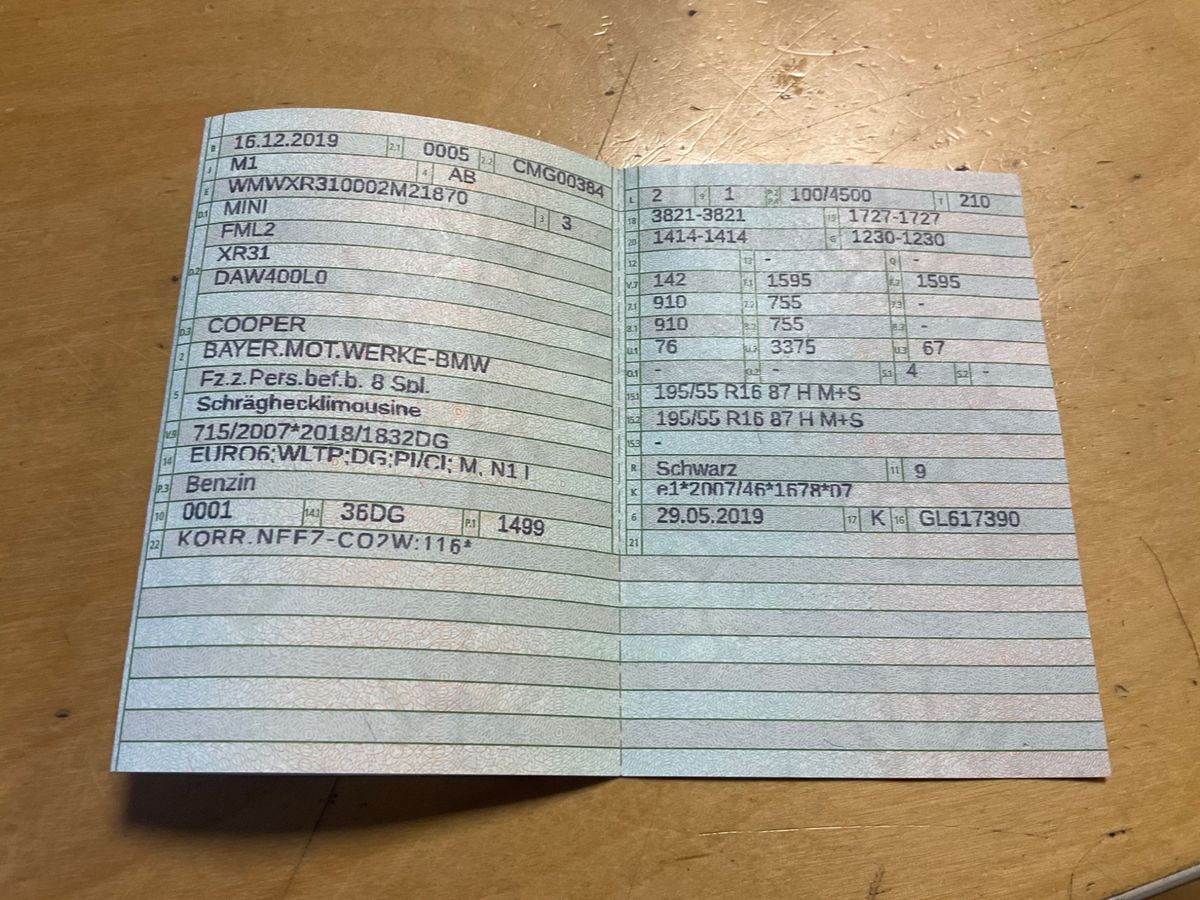 B 16.12.2019 2.1 0005 2.2 CMG00384
J M1 4 AB
E WMWXR310002M21870
D.1 MINI 3 3
FML2
D.2 XR31
DAW400L0
D.3 COOPER
2 BAYER.MOT.WERKE-BMW
5 Fz.z.Pers.bef.b. 8 Spl.
Schräghecklimousine
V.9 715/2007*2018/1832DG
14 EURO6;WLTP;DG;PI/CI; M, N1 I
P.3 Benzin
10 0001 14.1 36DG P.1 1499
22 KORR.NEFZ-CO2W:116*
L 2 9 1 P.2 P.4 100/4500 T 210
18 3821-3821 19 1727-1727
20 1414-1414 G 1230-1230
12 - 13 - Q -
V.7 142 F.1 1595 F.2 1595
7.1 910 7.2 755 7.3 -
8.1 910 8.2 755 8.3 -
U.1 76 U.2 3375 U.3 67
O.1 - O.2 - S.1 4 S.2 -
15.1 195/55 R16 87 H M+S
15.2 195/55 R16 87 H M+S
15.3 -
R Schwarz 11 9
K e1*2007/46*1678*07
6 29.05.2019 17 K 16 GL617390
21